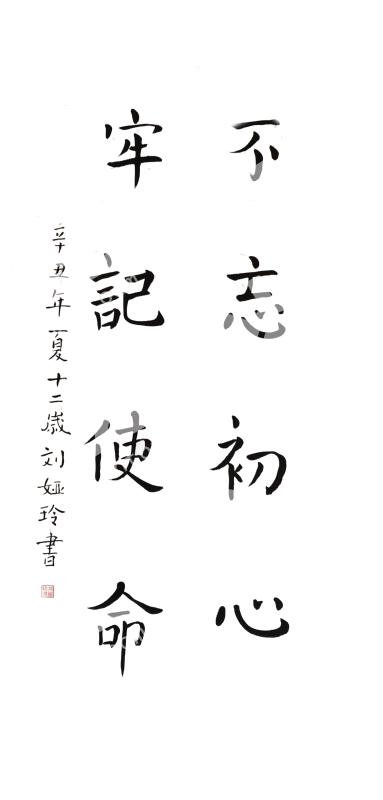 不忘初心
牢記使命
辛丑年夏十二歲刘娅玲書